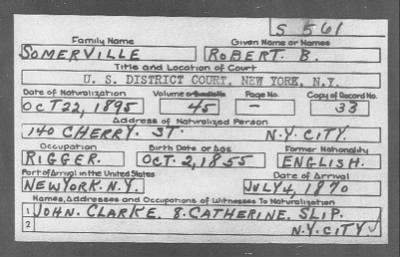 S 561
Family Name Given Name or Names
SOMERVILLE ROBERT. B.
Title and Location of Court
U. S. DISTRICT COURT, NEW YORK, N.Y.
Date of Naturalization Volume or Bundle No. Page No. Copy of Record No.
OCT 22, 1895 45 - 33
Address of Naturalized Person
140 CHERRY. ST. N.Y. CITY.
Occupation Birth Date or Age Former Nationality
RIGGER. OCT. 2, 1855 ENGLISH.
Port of Arrival in the United States Date of Arrival
NEW YORK. N.Y. JULY 4, 1870
Names, Addresses and Occupations of Witnesses To Naturalization
1 JOHN. CLARKE. 8. CATHERINE. SLIP.
2 N.Y. CITY